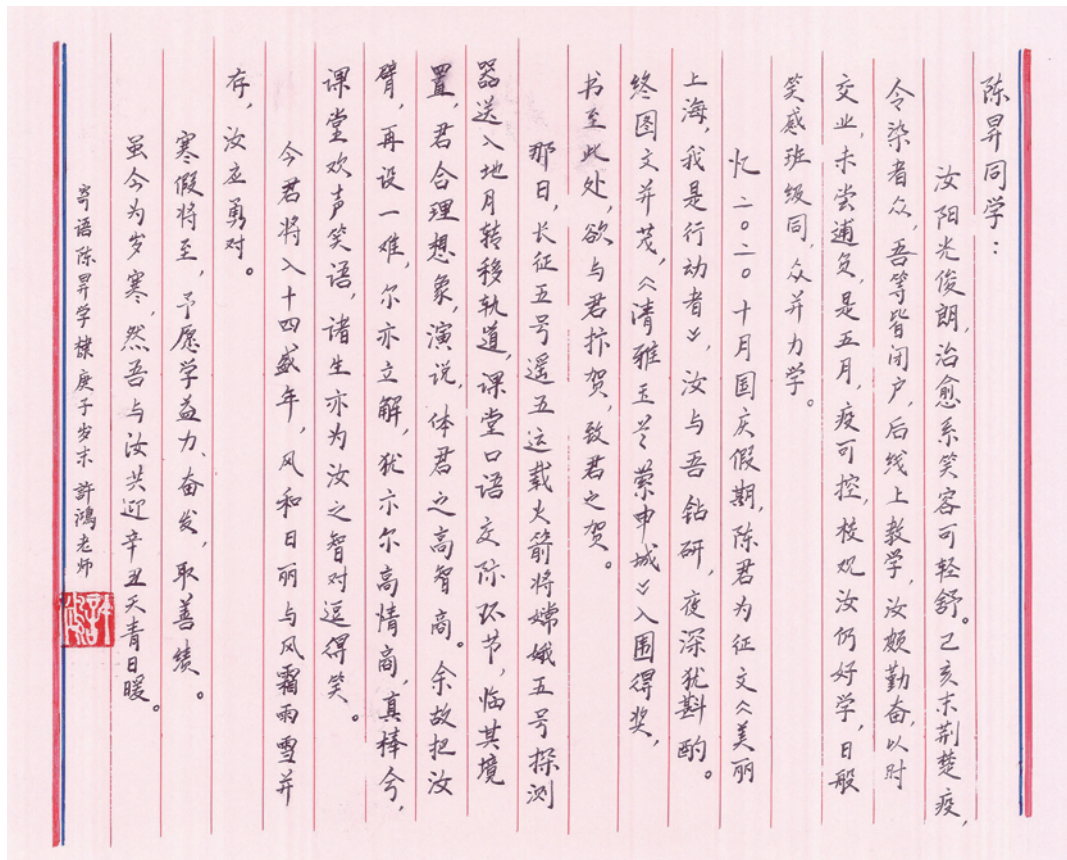 陈昇同学：
汝阳光俊朗，治愈系笑容可轻舒。己亥末荆楚疫，
令染者众，吾等皆闭户，后线上教学，汝颇勤奋，以时
交业，未尝逋负，是五月，疫可控，校观汝仍好学，日般
笑感班级同，众并力学。
忆二〇二〇十月国庆假期，陈君为征文《美丽
上海，我是行动者》，汝与吾钻研，夜深犹斟酌。
终图文并茂，《清雅玉兰萦申城》入围得奖，
书至此处，欲与君抃贺，致君之贺。
那日，长征五号遥五运载火箭将嫦娥五号探测
器送入地月转移轨道，课堂口语交际环节，临其境
置，君合理想象，演说，体君之高智商。余故把汝
臂，再设一难，尔亦立解，犹示尔高情商，真棒兮，
课堂欢声笑语，诸生亦为汝之智对逗得笑。
今君将入十四盛年，风和日丽与风霜雨雪并
存，汝应勇对。
寒假将至，予愿学益力、奋发，取善绩。
虽今为岁寒，然吾与汝共迎辛丑天青日暖。
寄语陈昇学棣 庚子岁末 許鴻老师